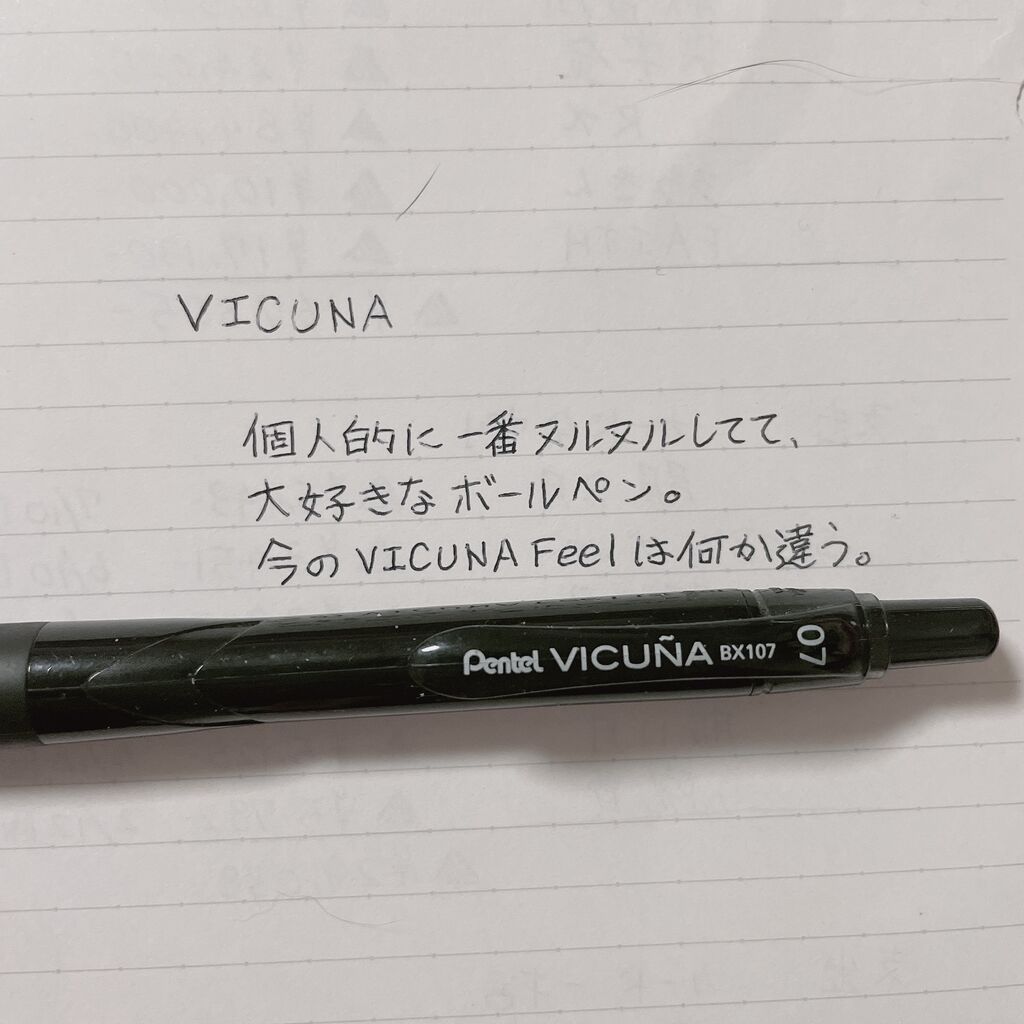 VICUNA
個人的に一番ヌルヌルしてて、
大好きなボールペン。
今のVICUNA Feelは何か違う。
Pentel VICUÑA BX107 07